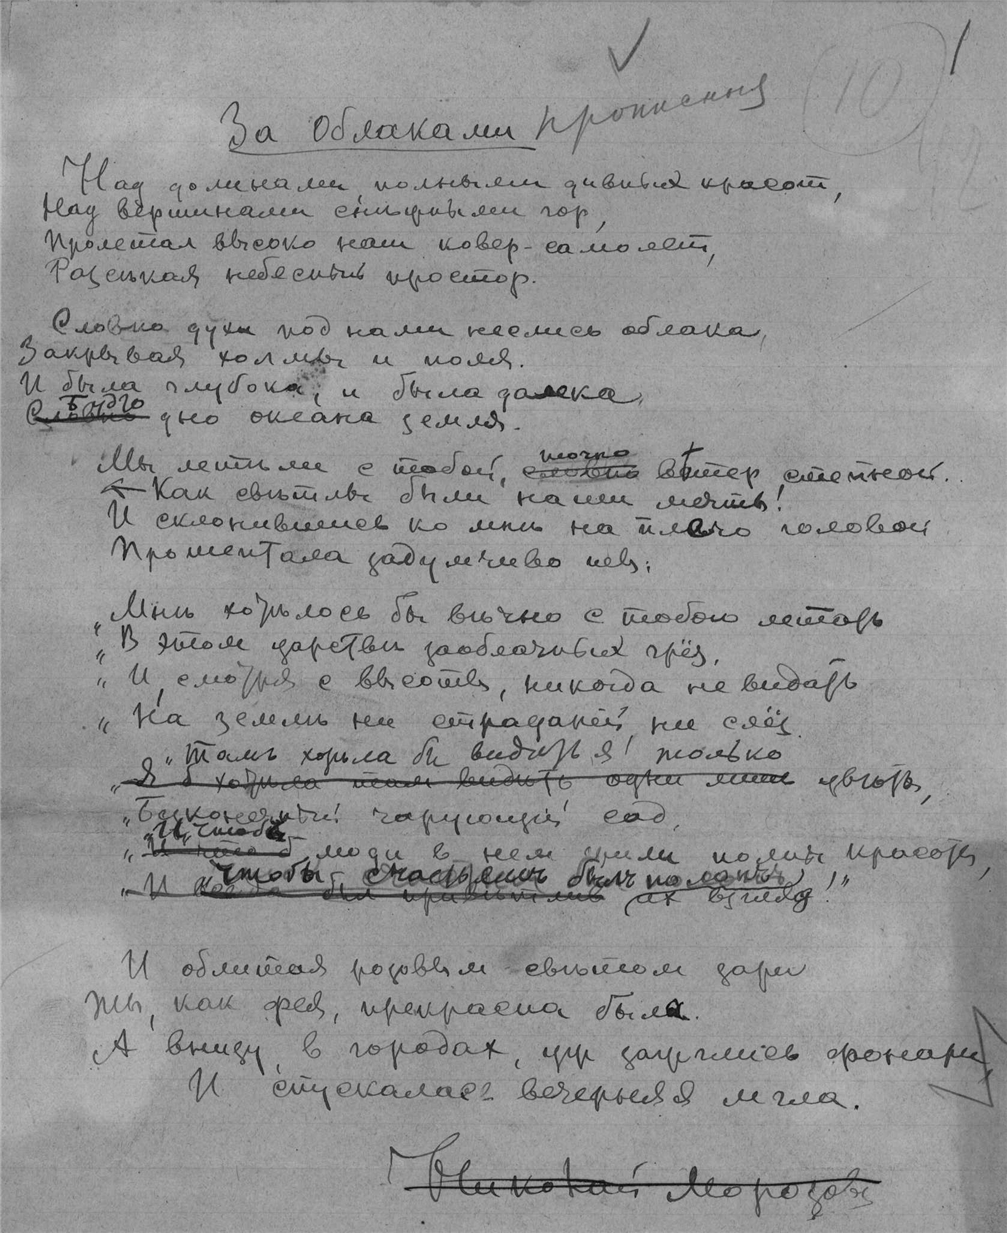 За облаками прописныя
10
1
2
Над долинами, полными дивных красот,
Над вѣршинами снѣжными гор,
Пролетал высоко наш ковер-самолет,
Разсѣкая небесный простор.
Словно духи под нами неслись облака,
Закрывая холмы и поля.
И была глубока, и была далека,
Будто
Словно дно океана земля.
точно
Мы летѣли с тобой, словно вѣтер степной.
Как свѣтлы были наши мечты!
И склонившись ко мнѣ на плечо головой
Прошептала задумчиво ты:
„Мнѣ хотѣлось бы вѣчно с тобою летать
„В этом царствѣ заоблачных грёз,
„И, смотря с высоты, никогда не видать
„На землѣ ни страданій, ни слёз.
„Там хотѣла бы видѣть я только
„Я б хотѣла там видѣть одни лишь цвѣты,
„Безконечный чарующій сад,
„И чтоб
„И чтоб люди в нем жили полны красоты,
„Чтобы счастьем был полон
„И был привѣтлив их взгляд!"
И облитая розовым свѣтом зари
Ты, как фея, прекрасна была.
А внизу, в городах, уж зажглись фонари,
И спускалась вечерняя мгла.
Николай Морозов